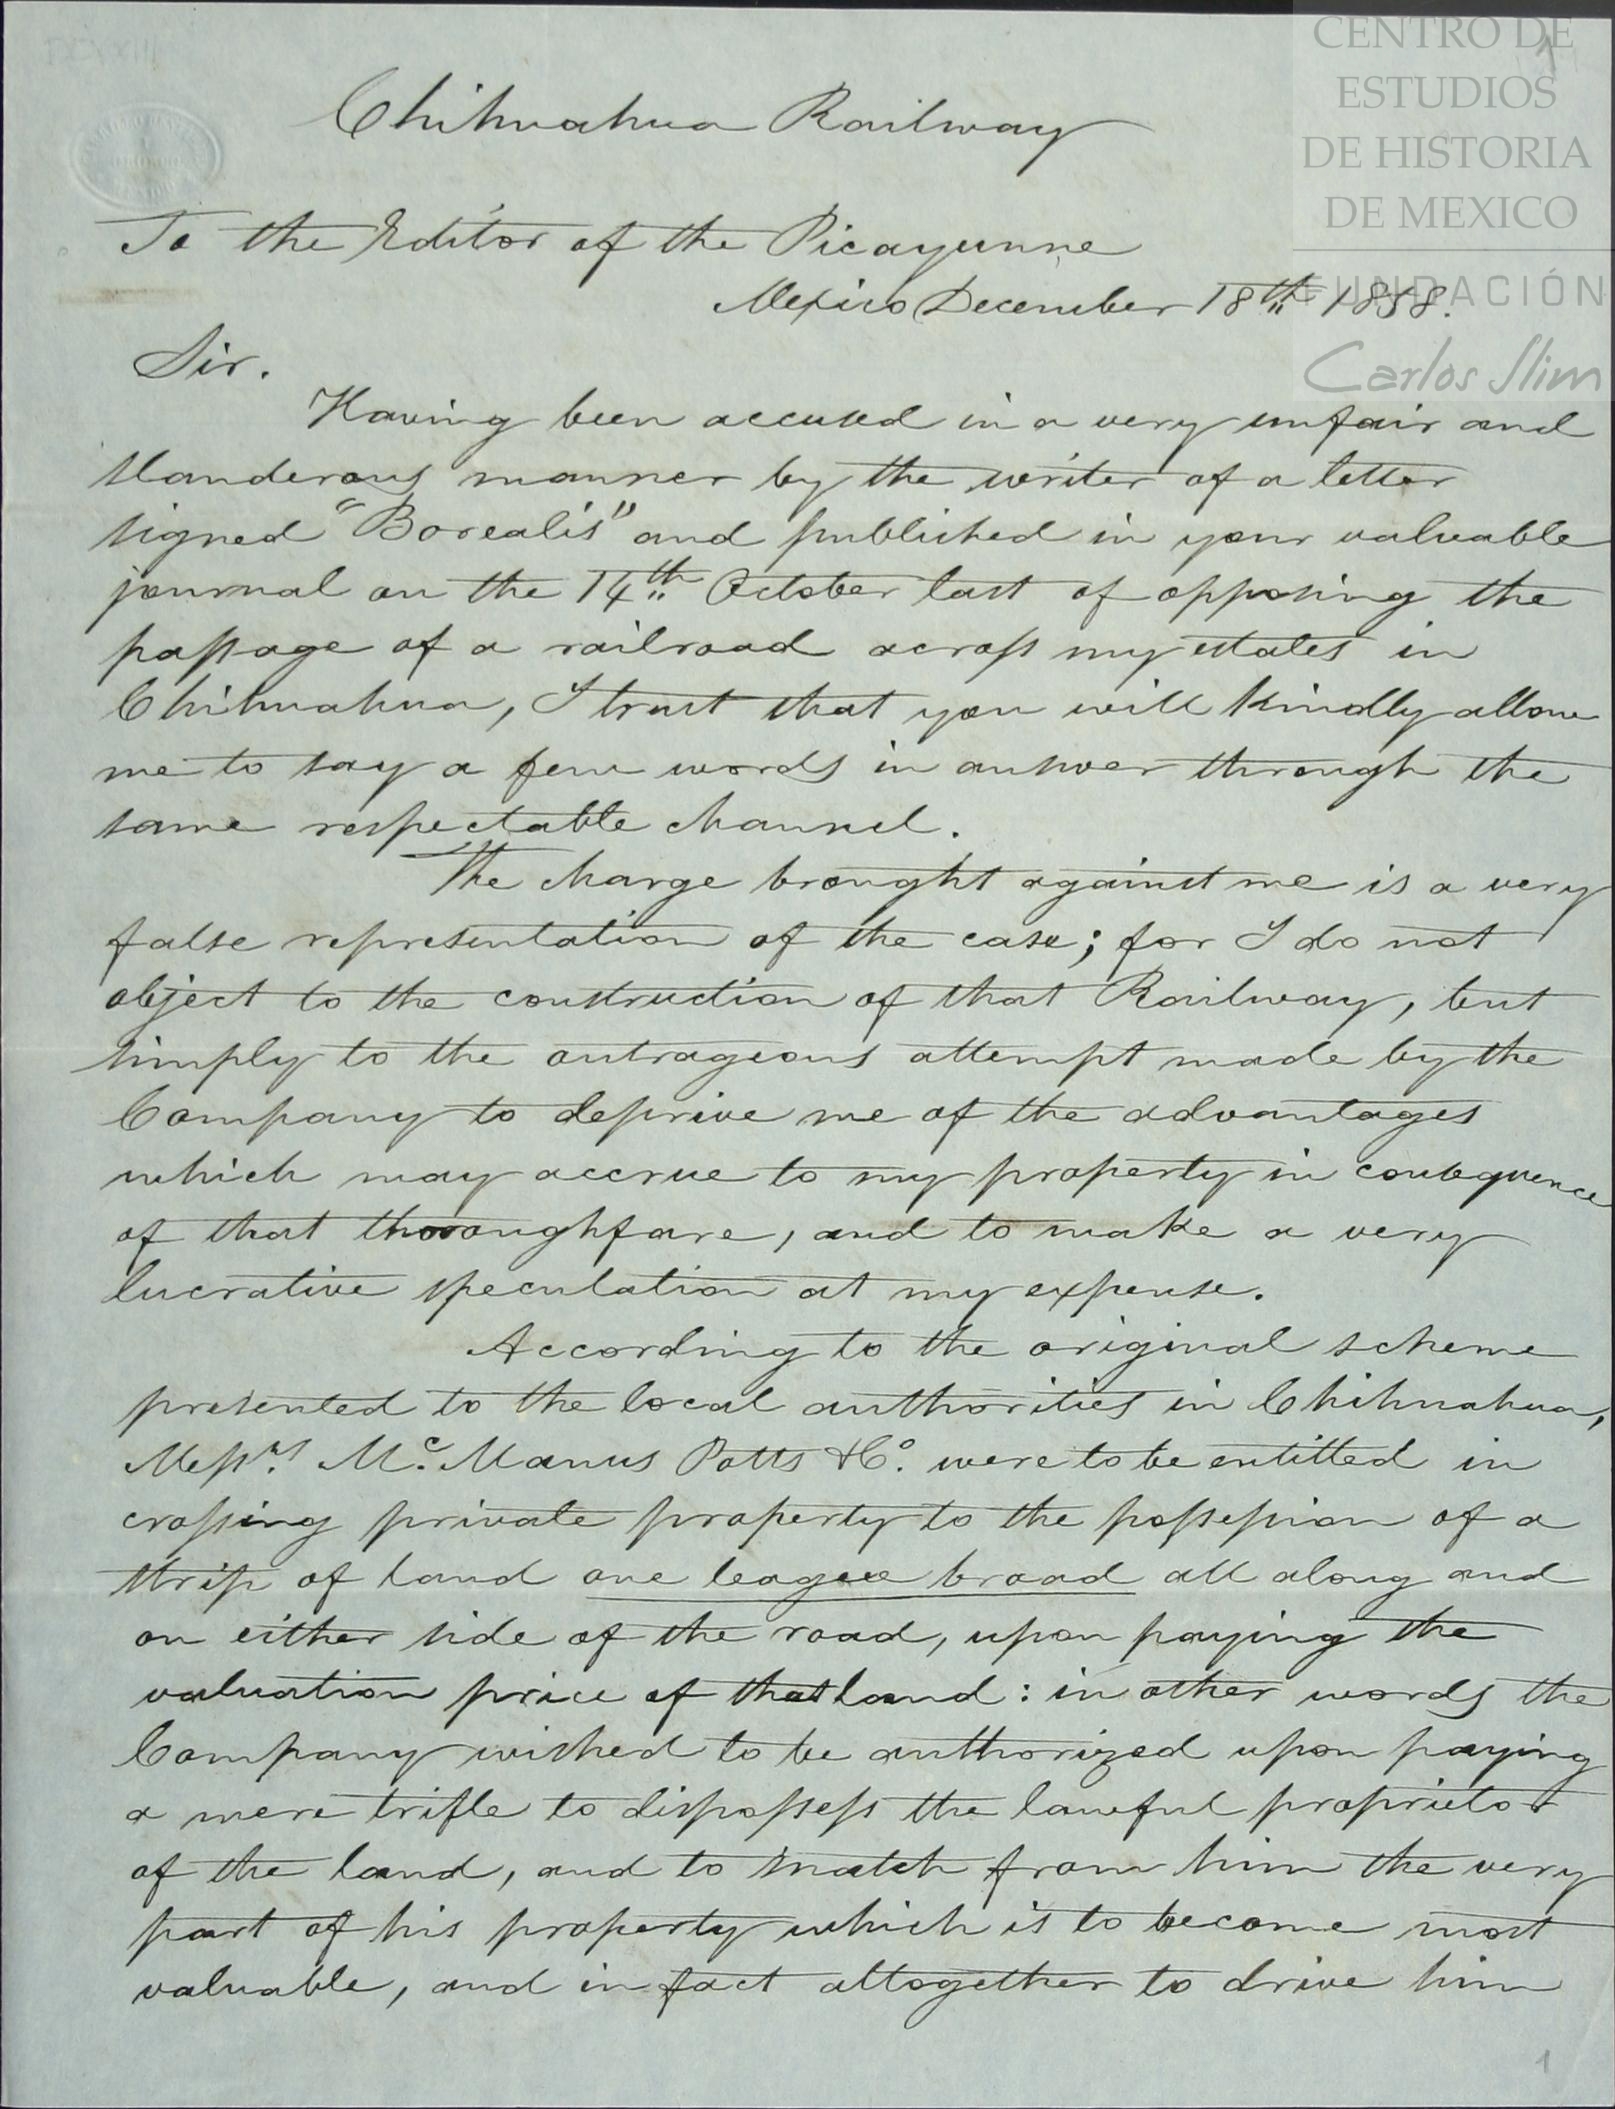 DCXXIII
CENTRO DE
ESTUDIOS
DE HISTORIA
DE MEXICO
FUNDACIÓN
Carlos Slim
Chihuahua Railway
To the Editor of the Picayunne
Mexico December 18th 1858.
Sir.
Having been accused in a very unfair and
slanderous manner by the writer of a letter
signed "Borealis" and published in your valuable
journal on the 14th October last of opposing the
passage of a railroad across my estates in
Chihuahua, I trust that you will kindly allow
me to say a few words in answer through the
same respectable channel.
The charge brought against me is a very
false representation of the case; for I do not
object to the construction of that Railway, but
simply to the outrageous attempt made by the
Company to deprive me of the advantages
which may accrue to my property in consequence
of that thoroughfare, and to make a very
lucrative speculation at my expense.
According to the original scheme
presented to the local authorities in Chihuahua,
Messrs. Mc. Manus Potts & Co. were to be entitled in
crossing private property to the possession of a
strip of land one league broad all along and
on either side of the road, upon paying the
valuation price of that land: in other words the
Company wished to be authorized upon paying
a mere trifle to dispossess the lawful proprietor
of the land, and to snatch from him the very
part of his property which is to become most
valuable, and in fact altogether to drive him
1